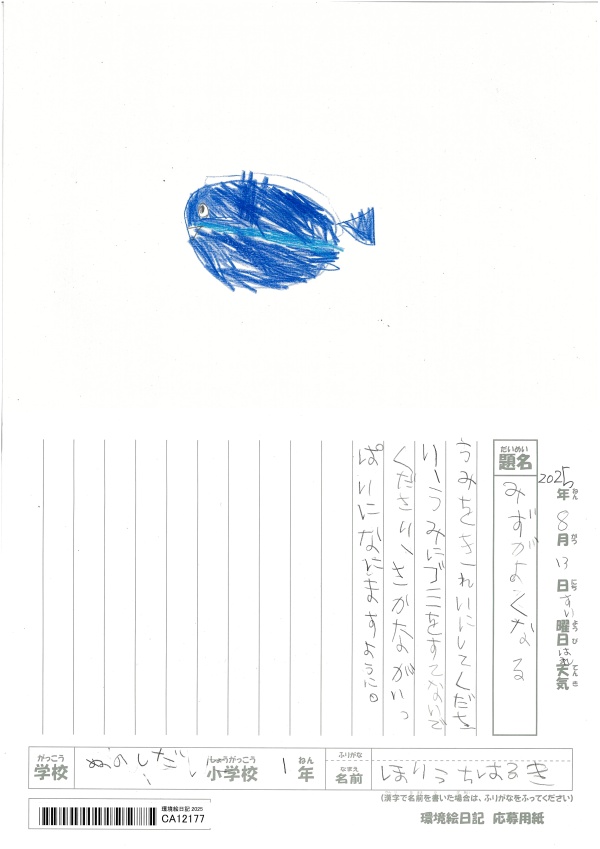 2025年ねん8月がつ13日にちすい曜日ようびはれ天気てんき
だいめい
題名
みずがよくなる
うみをきれいにしてくださ
い、うみにゴミをすてないで
ください、さかながいっ
ぱいになにますように。
がっこう
学校
ぬのしだ
しょうがっこう
小学校
1
ねん
年
ふりがな
なまえ
名前
ほりうちはるき
(漢字で名前を書いた場合は、ふりがなをふってください)
環境絵日記 2025
CA12177
環境絵日記 応募用紙